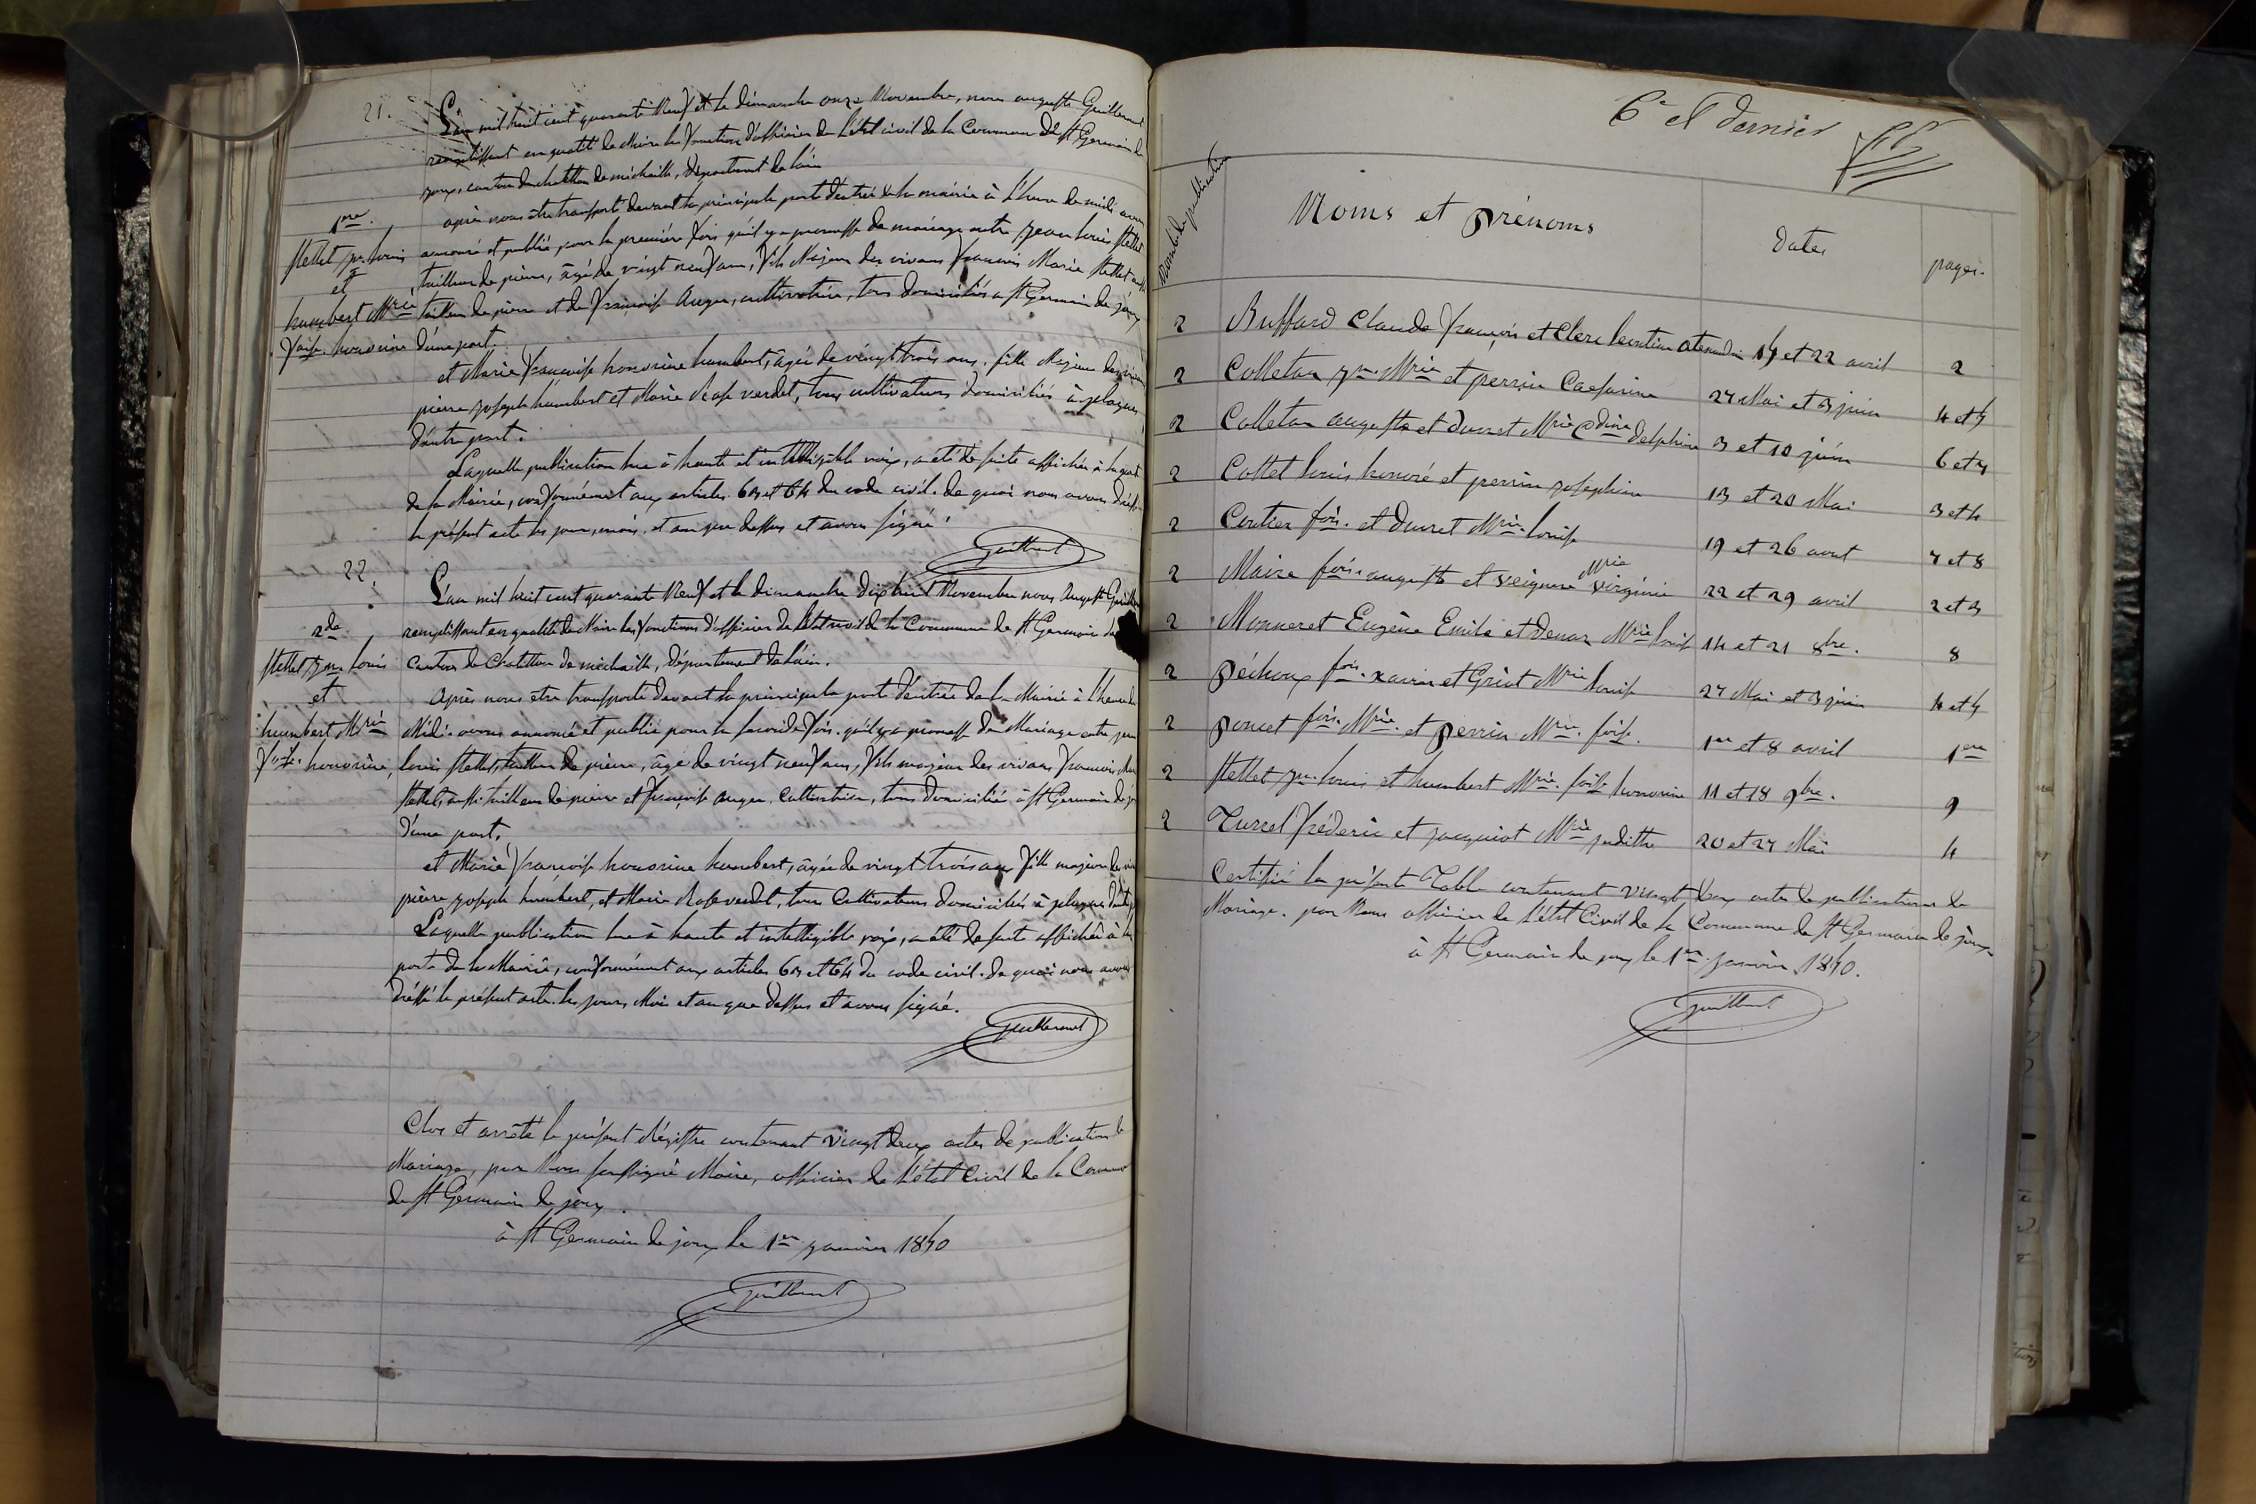 21.
L'an mil huit cent quarante Neuf et le dimanche onze Novembre, nous auguste Guillermet
remplissant en qualité de Maire les fonctions d'officier de l'état civil de la Commune de St Germain de
joux, canton de chatillon de michaille, département de l'ain
après nous être transporté devant la principale porte d'entrée de la mairie à l'heure de midi avons
1re
Stellet jn. louis
et
humbert Mrie
foise. honorine
annoncé et publié pour la première fois qu'il y a promesse de mariage entre jean louis Stellet
tailleur de pierre, âgé de vingt neuf ans, fils Majeur des vivans francois Marie Stellet aussi
tailleur de pierre et de françoise Auger, cultivatrice, tous domiciliés a St Germain de joux
d'une part.
et Marie françoise honorine humbert, âgée de vingt trois ans, fille Majeure des vivans
pierre joseph humbert et Marie Rose verdet, tous cultivateurs domiciliés à plagnes,
d'autre part.
Laquelle publication lue à haute et intelligible voix, a été de suite affichée à la porte
de la Mairie, conformément aux articles 63 et 64 du code civil. de quoi nous avons dressé
le présent acte les jour, mois, et an que dessus et avons signé.
Guillermet
22.
L'an mil huit cent quarante Neuf et le dimanche dix huit Novembre nous Auguste
remplissant en qualité de Maire les fonctions d'officier de l'état civil de la Commune de St Germain de
canton de Chatillon de michaille, département de l'ain.
2de
Stellet jn. louis
et
humbert Mrie
foise. honorine,
Après nous etre transporté devant la principale porte d'entrée de la Mairie à l'heure de
Midi. avons annoncé et publié pour la seconde fois. qu'il y a promesse de Mariage entre jean
louis Stellet, tailleur de pierre, âgé de vingt neuf ans, fils majeur des vivans francois Marie
Stellet, aussi tailleur de pierre et françoise Auger, Cultivatrice, tous domiciliés à St Germain de
d'une part,
et Marie françoise honorine humbert, âgée de vingt trois ans fille majeure des
pierre joseph humbert, et Marie Rose verdet, tous Cultivateurs domiciliés à plagnes
Laquelle publication lue à haute et intelligible voix, a été de suite affichée à la
porte de la Mairie, conformément aux articles 63 et 64 du code civil. de quoi nous avons
dressé le présent acte. les jour, Mois et an que dessus et avons signé.
Guillermet
Clos et arrêté le présent Régistre contenant vingt deux actes de publication de
Mariage, par Nous soussigné Maire, officier de l'état Civil de la Commune
de St Germain de joux.
à St Germain de joux le 1er janvier 1850
Guillermet
6e et dernier
publication
Noms et prénoms
dates
pages.
2 Buffard Claude françois et Clerc leontine alexandrine 15 et 22 avril 2
2 Colleton jn. Mrie et perrin Cæsarine 27 Mai et 3 juin 4 et 5
2 Colleton auguste et ducret Mrie Cdine delphine 3 et 10 juin 6 et 7
2 Collet louis honoré et perrin josephine 13 et 20 Mai 3 et 4
2 Coutier fois. et ducret Mrie. louise 19 et 26 aout 7 et 8
2 Maire fois. auguste et seigneur Mrie virginie 22 et 29 avril 2 et 3
2 Monneret Eugène Emile et denar Mrie louise 14 et 21 8bre. 8
2 péchoux fois. xavier et Griot Mrie louise 27 Mai et 3 juin 4 et 5
2 poncet fois. Mrie. et perrin Mrie. foise. 1er et 8 avril 1ere
2 Stellet jn. louis et humbert Mrie. foise honorine 11 et 18 9bre. 9
2 Turrel fréderic et jacquiot Mrie judithe 20 et 27 Mai 4
Certifié la présente Table contenant vingt deux actes de publications de
Mariage. par Nous officier de l'état Civil de la Commune de St Germain de joux
à St Germain de joux le 1er janvier 1850.
Guillermet